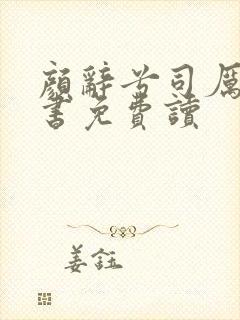 顏辭兮司厲
書免費讀
姜鈺